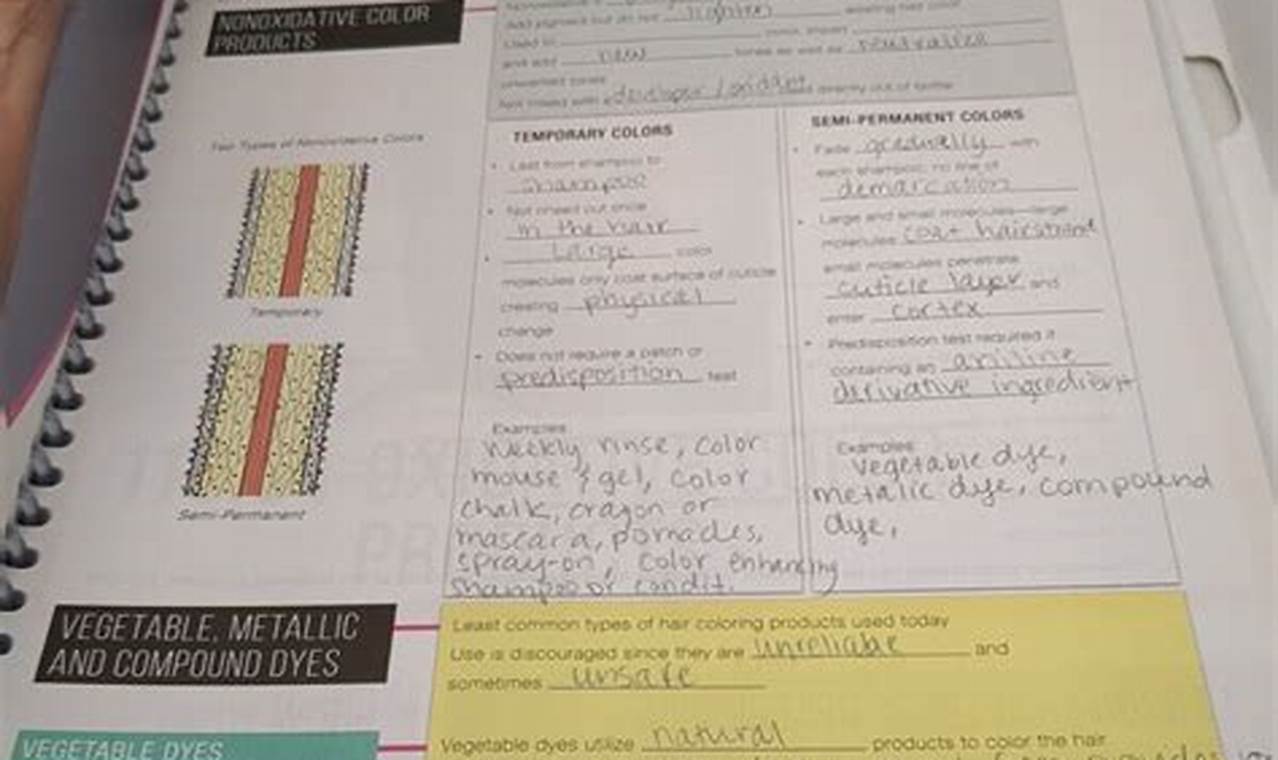 NONOXIDATIVE COLOR
PRODUCTS
Add pigment but do not lighten existing hair color
and add new tones as well as neutralize
unwanted tones
Not mixed with a developer / oxidant directly out of bottle
Two Types of Nonoxidative Colors
Temporary
Semi-Permanent
TEMPORARY COLORS
• Last from shampoo to
shampoo
• Not mixed out once
in the hair
• Large color
molecules only coat surface of cuticle
creating physical
change
• Does not require a patch or
predisposition test
Examples
Weekly rinse, color
mouse & gel, color
chalk, crayon or
mascara, pomades,
spray-on, color enhancing
shampoo or condit.
SEMI-PERMANENT COLORS
• Fade gradually with
each shampoo; no line of
demarcation
• Large and small molecules—large
molecules coat hairstrand
small molecules penetrate
cuticle layer and
enter cortex
• Predisposition test required if
containing an aniline
derivative ingredient
Examples
Vegetable dye,
metalic dye, compound
dye,
VEGETABLE, METALLIC
AND COMPOUND DYES
Least common types of hair coloring products used today
Use is discouraged since they are unreliable and
sometimes unsafe
VEGETABLE DYES
Vegetable dyes utilize natural products to color the hair